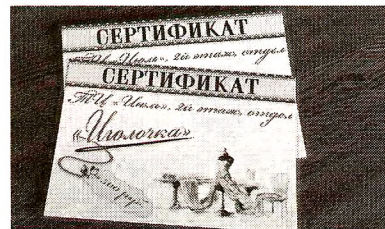 СЕРТИФИКАТ
2й этаж, отдел
СЕРТИФИКАТ
ТЦ « », 2й этаж, отдел
«Иголочка»
руб